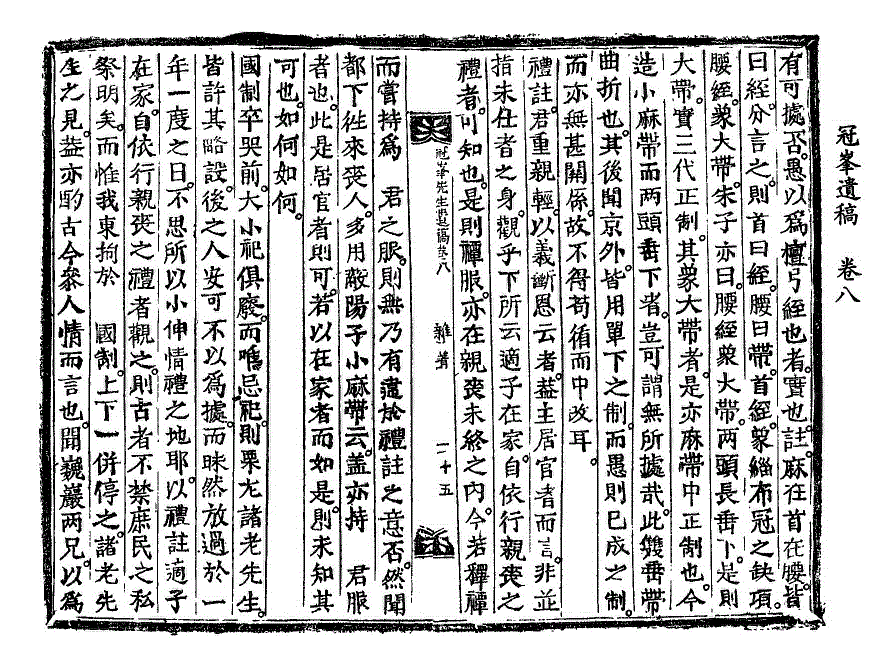 冠峯遺稿　卷八
有可據否。愚以爲檀弓絰也者。實也。註。麻在首在腰。皆
曰絰。分言之。則首曰絰。腰曰帶。首絰象緇布冠之缺項。
腰絰象大帶。朱子亦曰。腰絰象大帶。兩頭長垂下。是則
大帶。實三代正制。其象大帶者。是亦麻帶中正制也。今
造小麻帶而兩頭垂下者。豈可謂無所據哉。此雙垂帶
曲折也。其後聞京外。皆用單下之制。而愚則已成之制。
而亦無甚關係。故不得苟循而中改耳。
禮註。君重親輕。以義斷恩云者。益主居官者而言。非並
指未仕者之身。觀乎下所云適子在家。自依行親喪之
禮者。可知也。是則禫服。亦在親喪未終之內。今若釋禫
冠峯先生遺稿卷八　雜著　二十五
而嘗持爲　君之服。則無乃有違於禮註之意否。然聞
都下往來喪人。多用敝陽子小麻帶云。盖亦持　君服
者也。此是居官者則可。若以在家者而如是。則未知其
可也。如何如何。
國制卒哭前。大小祀俱廢。而唯忌祀。則栗尤諸老先生。
皆許其略設。後之人安可不以爲據。而昧然放過於一
年一度之日。不思所以小伸情禮之地耶。以禮註適子
在家。自依行親喪之禮者觀之。則古者不禁庶民之私
祭明矣。而惟我東拘於　國制。上下一併停之。諸老先
生之見。益亦酌古今參人情而言也。聞巍巖兩兄以爲